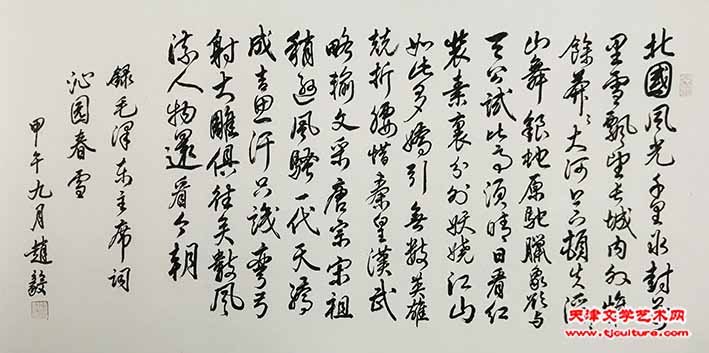 北國風光千里冰封萬
里雪飄望長城内外惟
餘莽莽大河上下頓失滔滔
山舞銀蛇原馳臘象欲与
天公試比高須晴日看红
装素裹分外妖娆江山
如此多嬌引無數英雄
競折腰惜秦皇漢武
略輸文采唐宗宋祖
稍遜風騷一代天驕
成吉思汗只識彎弓
射大雕俱往矣數風
流人物還看今朝
錄毛澤东主席詞
沁园春雪
甲午九月趙毅
天津文学艺术网
www.tjculture.com